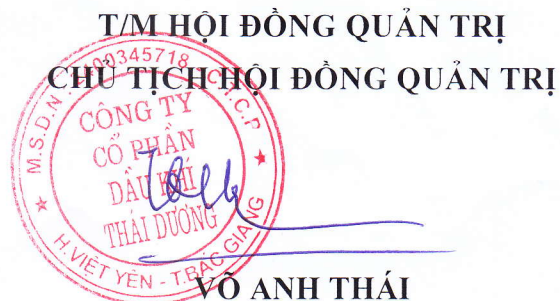 T/M HỘI ĐỒNG QUẢN TRỊ
CHỦ TỊCH HỘI ĐỒNG QUẢN TRỊ
M.S.D.N: 2400345718 - C.T.C.P
CÔNG TY
CỔ PHẦN
DẦU KHÍ
THÁI DƯƠNG
H.VIỆT YÊN - T.BẮC GIANG
VÕ ANH THÁI